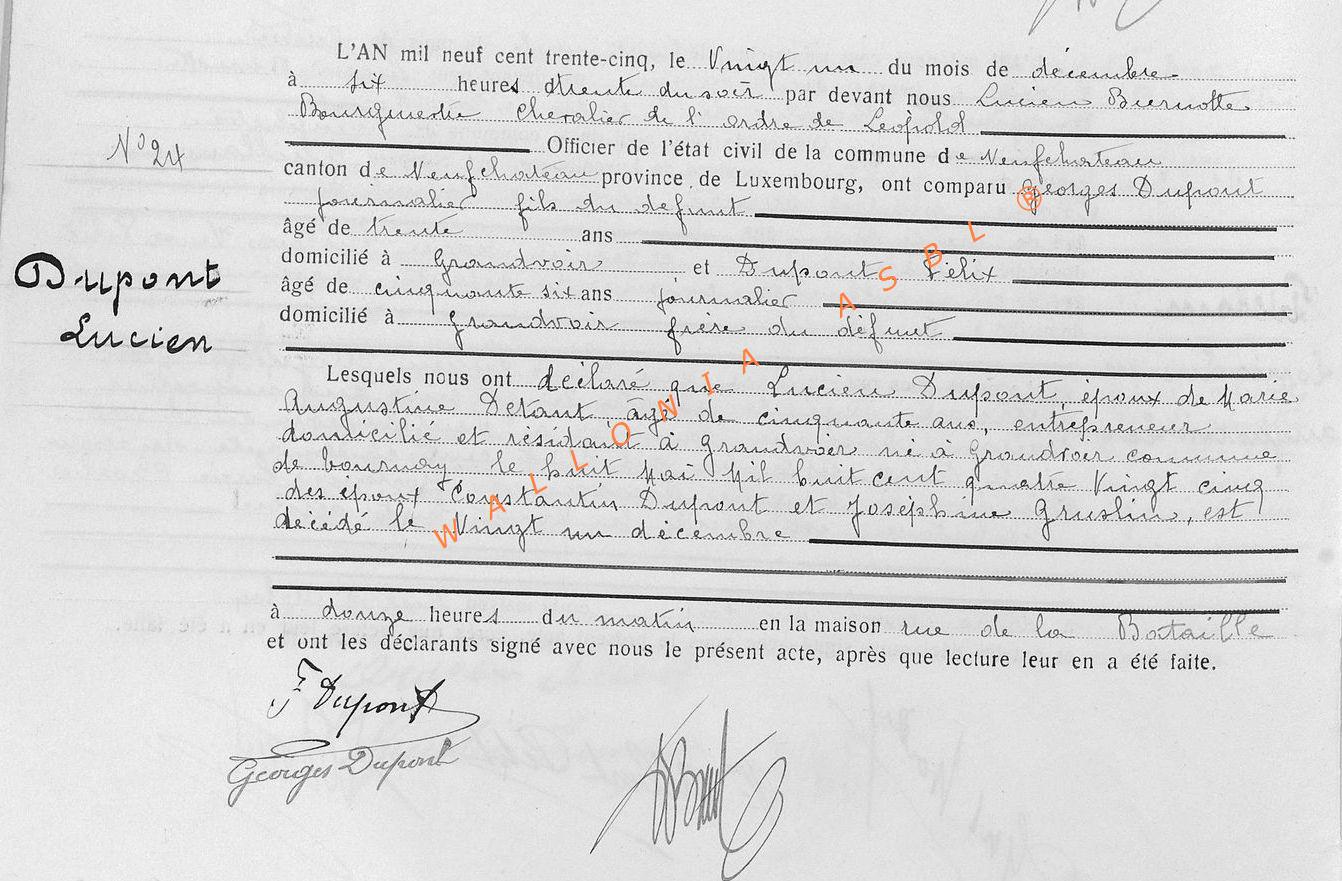 L'AN mil neuf cent trente-cinq, le Vingt un du mois de décembre
à six heures trente du soir par devant nous Lucien Biernotte
Bourgmestre Chevalier de l'ordre de Leopold
N° 24
Officier de l'état civil de la commune de Neufchateau
canton de Neufchateau province de Luxembourg, ont comparu Georges Dupont
journalier fils du défunt
âgé de trente ans
Dupont
Lucien
domicilié à Grandvoir et Dupont Félix
âgé de cinquante six ans journalier
domicilié à Grandvoir frère du défunt
Lesquels nous ont déclaré que Lucien Dupont, époux de Marie
Augustine Detant âgé de cinquante ans, entrepreneur
domicilié et résidant à Grandvoir né à Grandvoir commune
de le huit Mai Mil huit cent quatre Vingt cinq
des époux Constantin Dupont et Joséphine Gruslin, est
décédé le Vingt un décembre
à douze heures du matin en la maison rue de la Bataille
et ont les déclarants signé avec nous le présent acte, après que lecture leur en a été faite.
F Dupont
Georges Dupont
WALLONIA ASBL ®